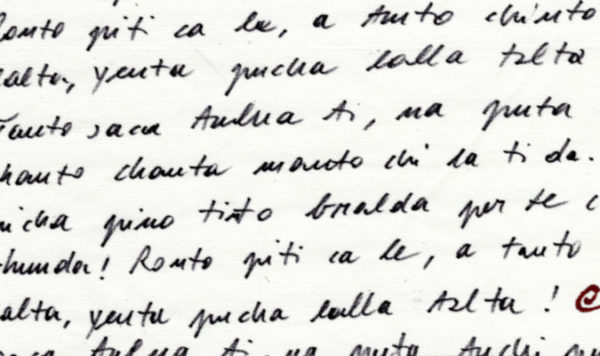 Ronto piti ca le, a tanto chinto
calta, yenta pucha calla tzlta
Tanto saca Anlna ti, na puta
chanto chanta manto chi la ti da.
micha pino tinto bralda per te c
chunda! Ronto piti ca le, a tanto
calta, yenta pucha calla tzlta!
saca Anlna ti, na puta